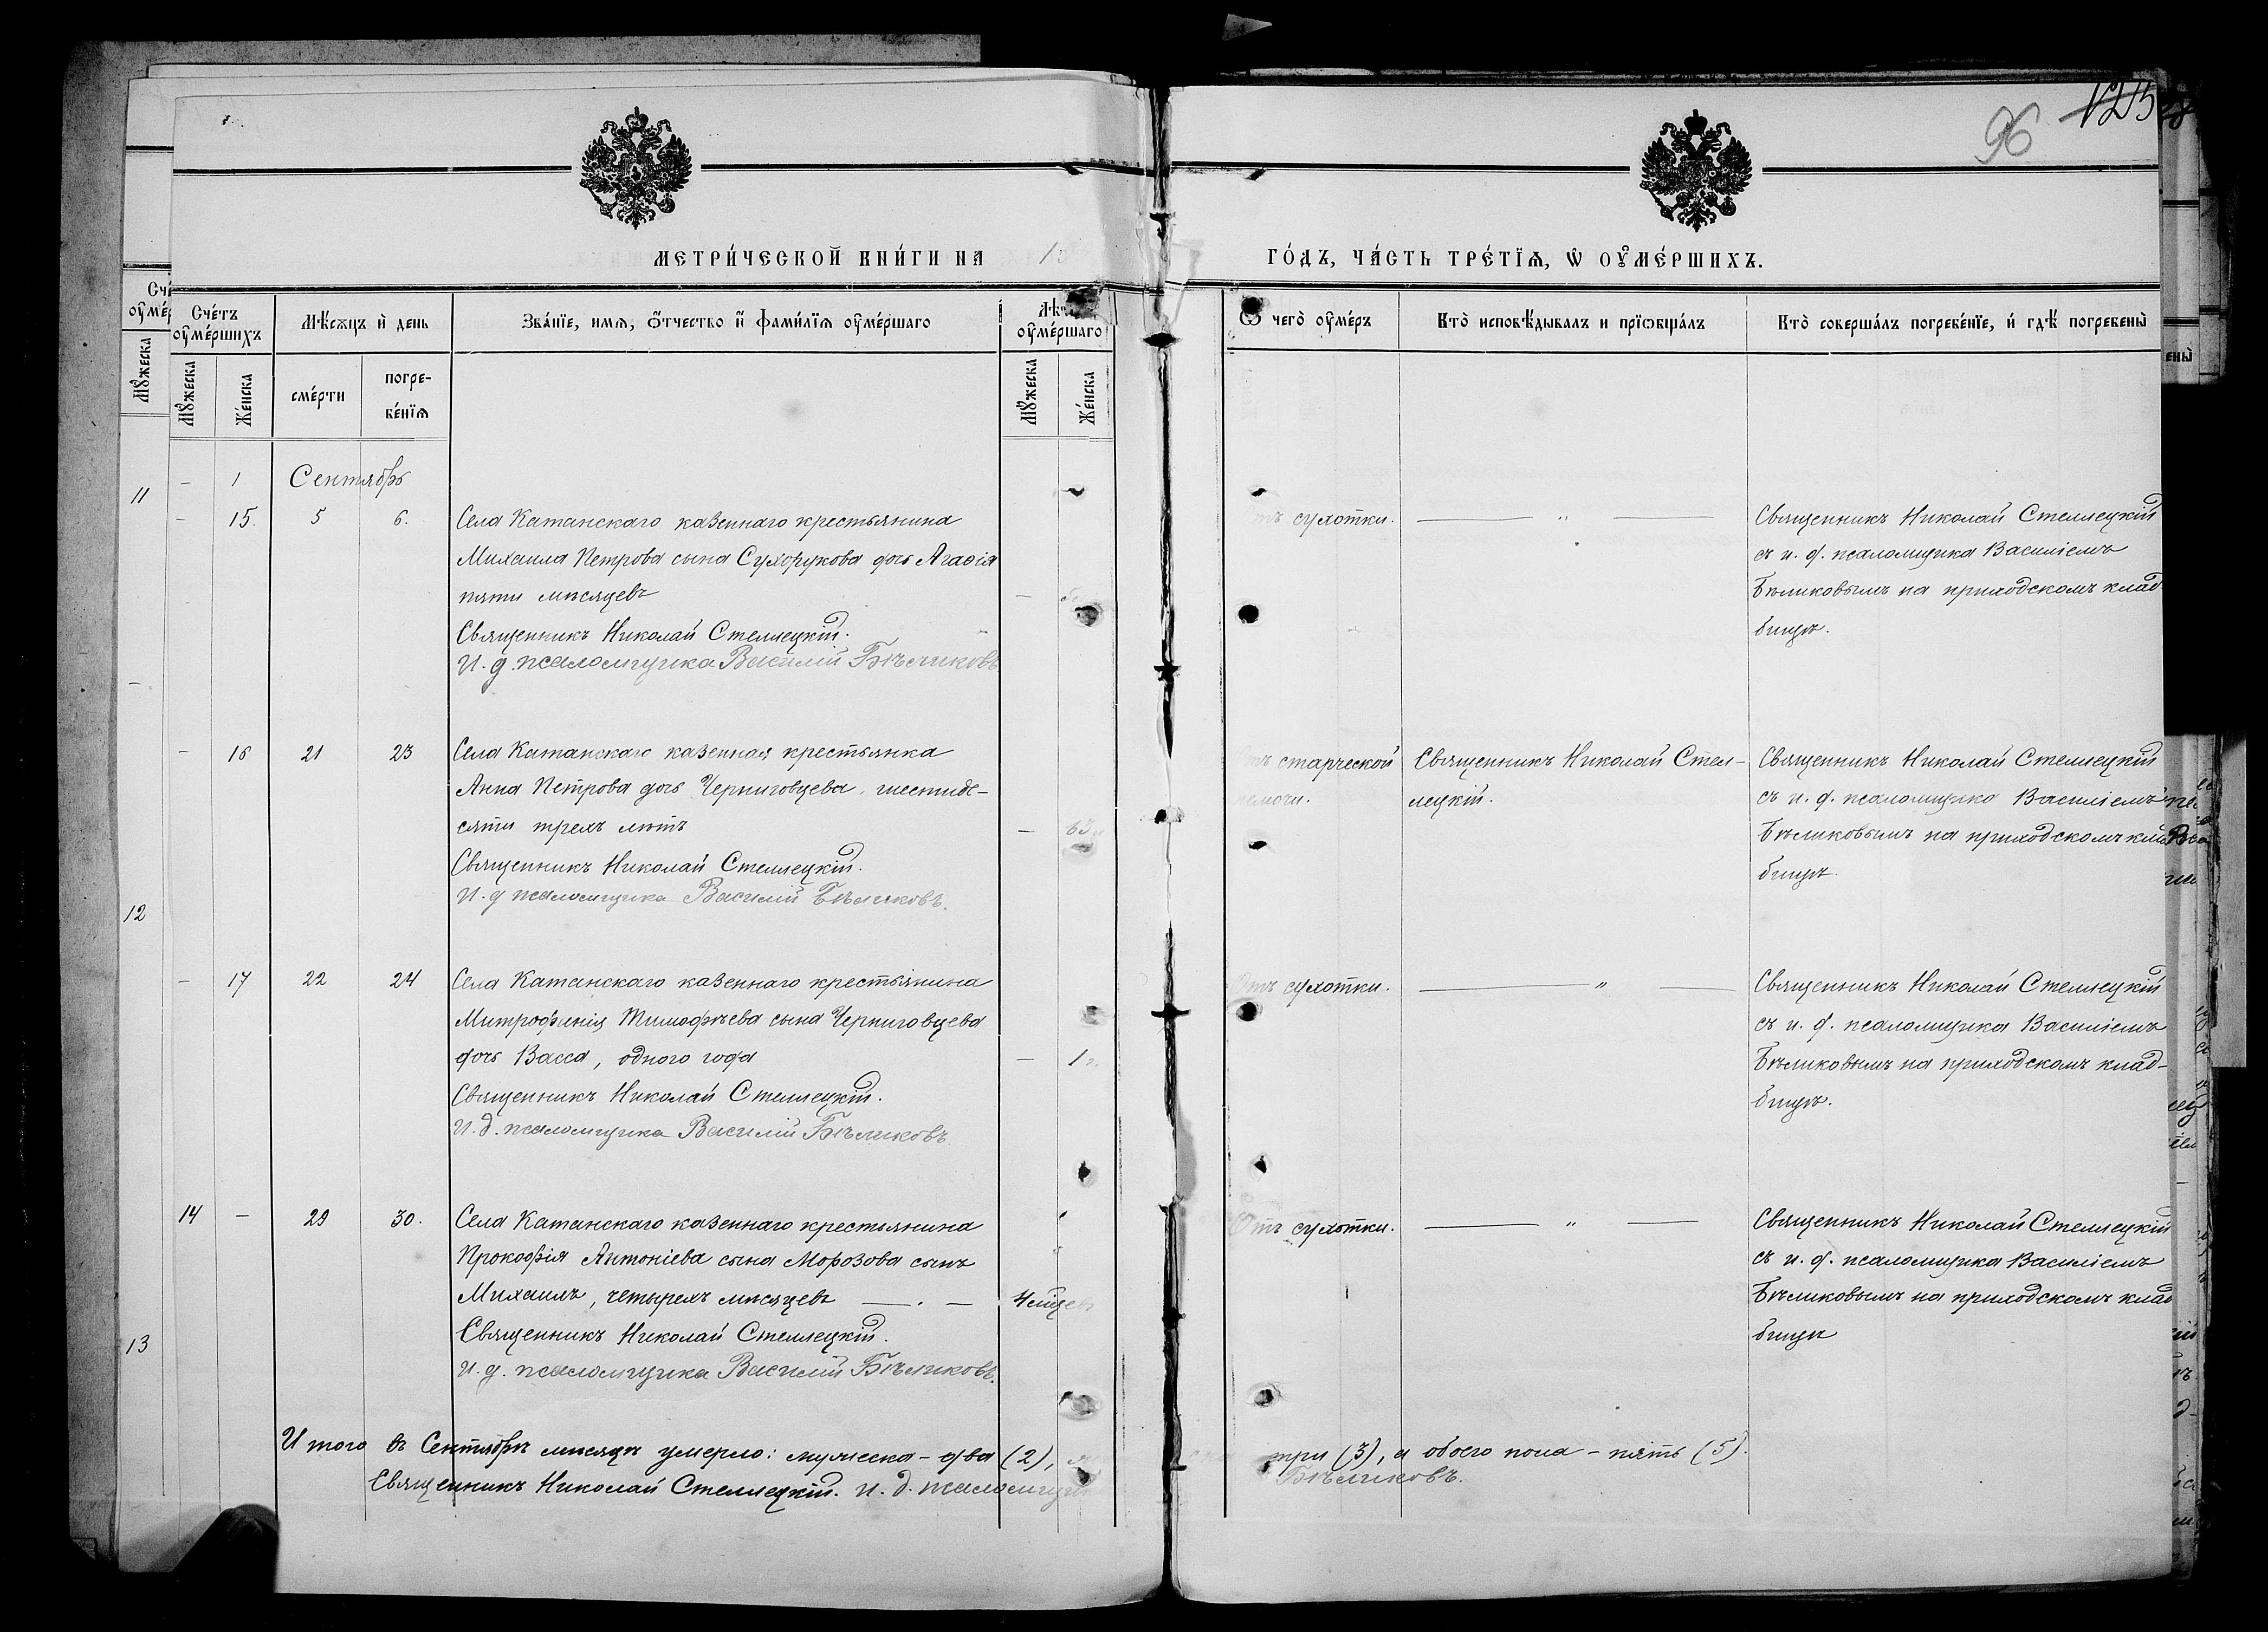 96 125
МЕТРИ́ЧЕСКОЙ КНИ́ГИ НА 1
ГО́ДЪ, ЧА́СТЬ ТРЕ́ТЇѦ, Ѡ ОУ҆МЕ́РШИХЪ.
Сче́тъ оу҆ме́ршихъ
Мѣ́сѧцъ и҆ день
Зва́нїе, имѧ, ѻ҆тчество и҆ фами́лїѧ оу҆ме́ршаго
Лѣт оу҆ме́ршаго
Ѿ чегѡ̀ оу҆ме́ръ
Кто̀ исповѣ́дывалъ и прїѡбща́лъ
Кто̀ соверша́лъ погребе́нїе, и҆ гдѣ̀ погребены̀
Мꙋ́жеска
Же́нска
сме́рти
погре-
бе́нїѧ
Мꙋ́жеска
Же́нска
11
12
13
- 1 Сентябрь
- 15. 5 6.
Села Катанскаго казеннаго крестьянина
Михаила Петрова сына Сухорукова дочь Агаѳія
пяти мѣсяцевъ
Священникъ Николай Стеллецкій.
И. д. псаломщика Василій Бѣликовъ
сухотки.
Священникъ Николай Стеллецкій
съ и. д. псаломщика Василіемъ
Бѣликовымъ на приходскомъ клад
бищѣ.
- 16 21 23
Села Катанскаго казенная крестьянка
Анна Петрова дочь Черниговцева, шестиде-
сяти трехъ лѣтъ
- 63
Священникъ Николай Стеллецкій.
И. д псаломщика Василій Бѣликовъ.
старческой
немочи.
Священникъ Николай Стел-
лецкій.
Священникъ Николай Стеллецкій
съ и. д. псаломщика Василіемъ
Бѣликовымъ на приходскомъ клад
бищѣ.
- 17 22 24
Села Катанскаго казеннаго крестьянина
Митрофанія Тимофѣева сына Черниговцева
дочь Васса, одного года
- 1 г.
Священникъ Николай Стеллецкій.
И. д. псаломщика Василій Бѣликовъ
Отъ сухотки.
Священникъ Николай Стеллецкій
съ и. д. псаломщика Василіемъ
Бѣликовымъ на приходскомъ клад-
бищѣ.
14 - 29 30.
Села Катанскаго казеннаго крестьянина
Прокофія Антоніева сына Морозова сынъ
Михаилъ, четырехъ мѣсяцевъ
4 мѣцевъ
Священникъ Николай Стеллецкій.
И. д. псаломщика Василій Бѣликовъ.
Отъ сухотки.
Священникъ Николай Стеллецкій
съ и. д. псаломщика Василіемъ
Бѣликовымъ на приходскомъ клад
бищѣ
Итого въ Сентябрѣ мѣсяцѣ умерло: мужеска - два (2), три (3), а обоего пола - пять (5).
Священникъ Николай Стеллецкій. И. д. псаломщика Бѣликовъ.